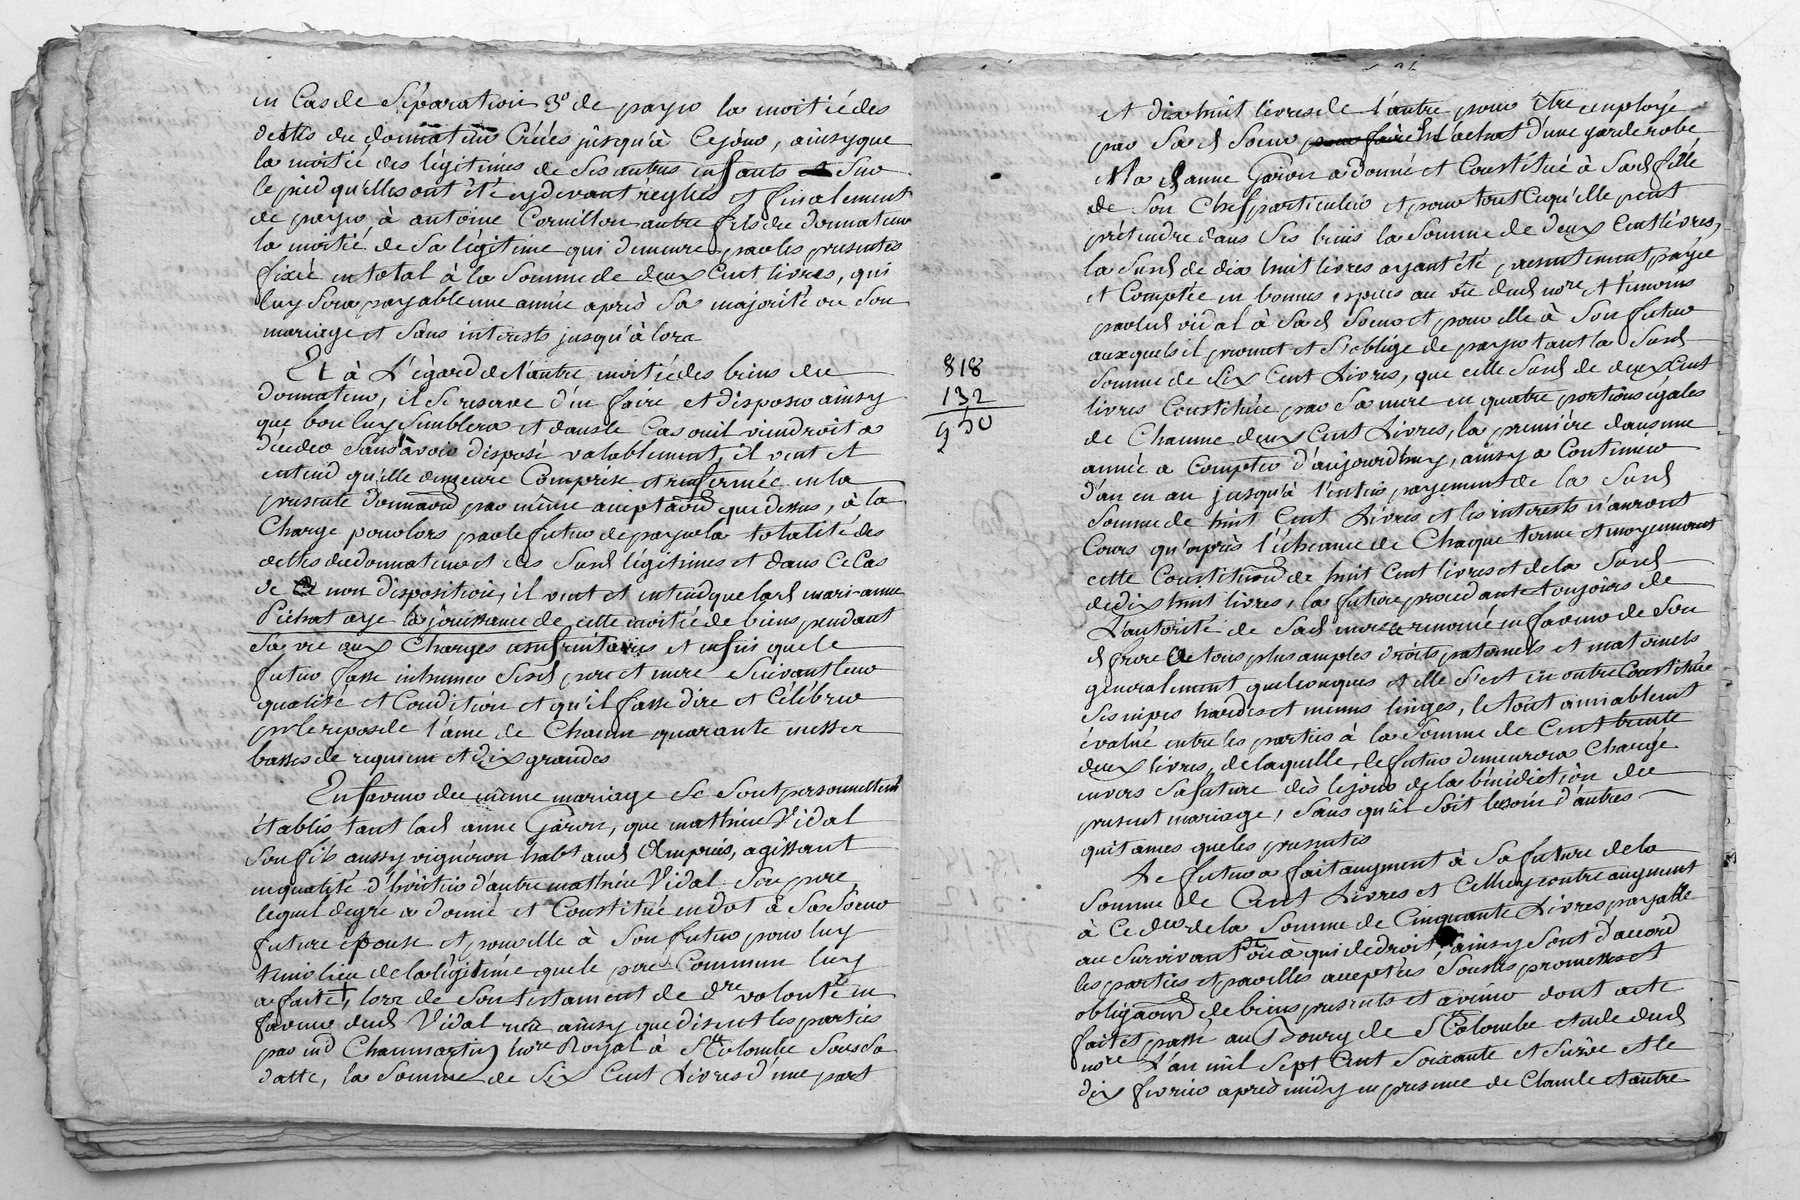 en Cas de Séparation 3º de payer la moitié des
dettes du donnateur Créés jusqu'à Cejour, ainsyque
la moitié des légitimes de Ses autres enfants Sur
le pied qu'elles ont été cydevant réglées et finalement
de payer à antoine Cornillon autre fils du donnateur
la moitié de Sa légitime qui demeure par les presentes
fixée en total à la Somme de deux Cent livres, qui
luy Sera payable une année après Sa majorité ou Son
mariage et Sans interests jusqu'à lors
Et à L'égard de l'autre moitié des biens du
donnateur, il Se reserve d'en faire et disposer ainsy
que bon luy Semblera et dans le Cas ou il viendroit a
décéder Sans avoir disposé valablement, il veut et
entend qu'elle demeure Comprise et renfermée en la
presente donnaõn par même acceptaõn que dessus, à la
Charge pour lors par le futur de payer la totalité des
dettes du donnateur et des Susd légitimes et dans Ce Cas
de non disposition, il veut et entend que lad marianne
Pichat aye la jouissance de cette moitié de biens pendant
Sa vie aux Charges usufruitaires et enfin que le
futur fasse inhumer Sesd pere et mere Suivant leur
qualité et Condition et qu'il fasse dire et Célébrer
pr le repos de l'ame de Chacun quarante messes
basses de requiem et dix grandes
En faveur du même mariage Se Sont personnellemt
établis tant lad anne Garon, que mathieu Vidal
Son fils aussy vignéron habt aud Ampuis, agissant
en qualité d'héritier d'autre mathieu Vidal Son pere
lequel de gré a donné et Constitué en dot à Sa Soeur
future epouse et pour elle à Son futur pour luy
tenir lieu de la légitime que le pere Commun luy
a faite, lors de Son testament de dre volonté en
faveur dud Vidal reçu ainsy que disent les parties
par md Chaumartin nore Royal à Ste Colombe Sous Sa
datte, la Somme de Six Cent Livres d'une part
818
132
950
et dix huit livres de l'autre pour être employé
par Sad Soeur pour faire l'achat d'une garderobe
et la d anne Garon a donné et Constitué à Sad fille
de Son Chef particulier et pour tout Ce qu'elle peut
prétendre dans Ses biens la Somme de deux Cent livres,
la Susd de dix huit livres ayant été presentement payée
et Comptée en bonnes especes au vu dud nore et témoins
par led vidal à Sad Soeur et pour elle à Son futur
auxquels il promet et S'oblige de payer tant la Susd
Somme de Six Cent Livres, que celle Susd de deux Cent
livres Constituée par Sa mere en quatre portions égales
de Chacune deux Cent Livres, la première dans une
année a Compter d'aujourd'huy, ainsy a Continuer
d'an en an jusqu'à l'entier payement de la Susd
Somme de huit Cent Livres et les interests n'auront
Cours qu'après l'échéance de Chaque terme et moyennant
cette Constitutiõn de huit Cent livres et de la Susd
de dix huit livres, la future procedante toujours de
L'autorité de Sad mere a renoncé en faveur de Son
d frere de tous plus amples droits paternels et maternels
généralement quelconques et elle S'est en outre Constituée
Ses nipes hardes et menus linges, le tout amiablement
évalué entre les parties à la Somme de Cent trente
deux livres, de laquelle, le futur demeurera Chargé
envers Sa future dès le jour de la bénédiction du
present mariage, Sans qu'il Soit besoin d'autres
quitances que les presentes
Le futur a fait augment à Sa future de la
Somme de Cent Livres et Celle cy contre augment
à Ce der de la Somme de Cinquante Livres payable
au Survivant ou à qui de droit ainsy Sont d'accord
les parties et par elles acceptées Sous les promesses et
obligaõns de biens presents et avenir dont acte
fait et passé au Bourg de Ste Colombe etude dud
nore L'an mil Sept Cent Soixante et Seize et le
dix fevrier après midy en presence de Claude et autre